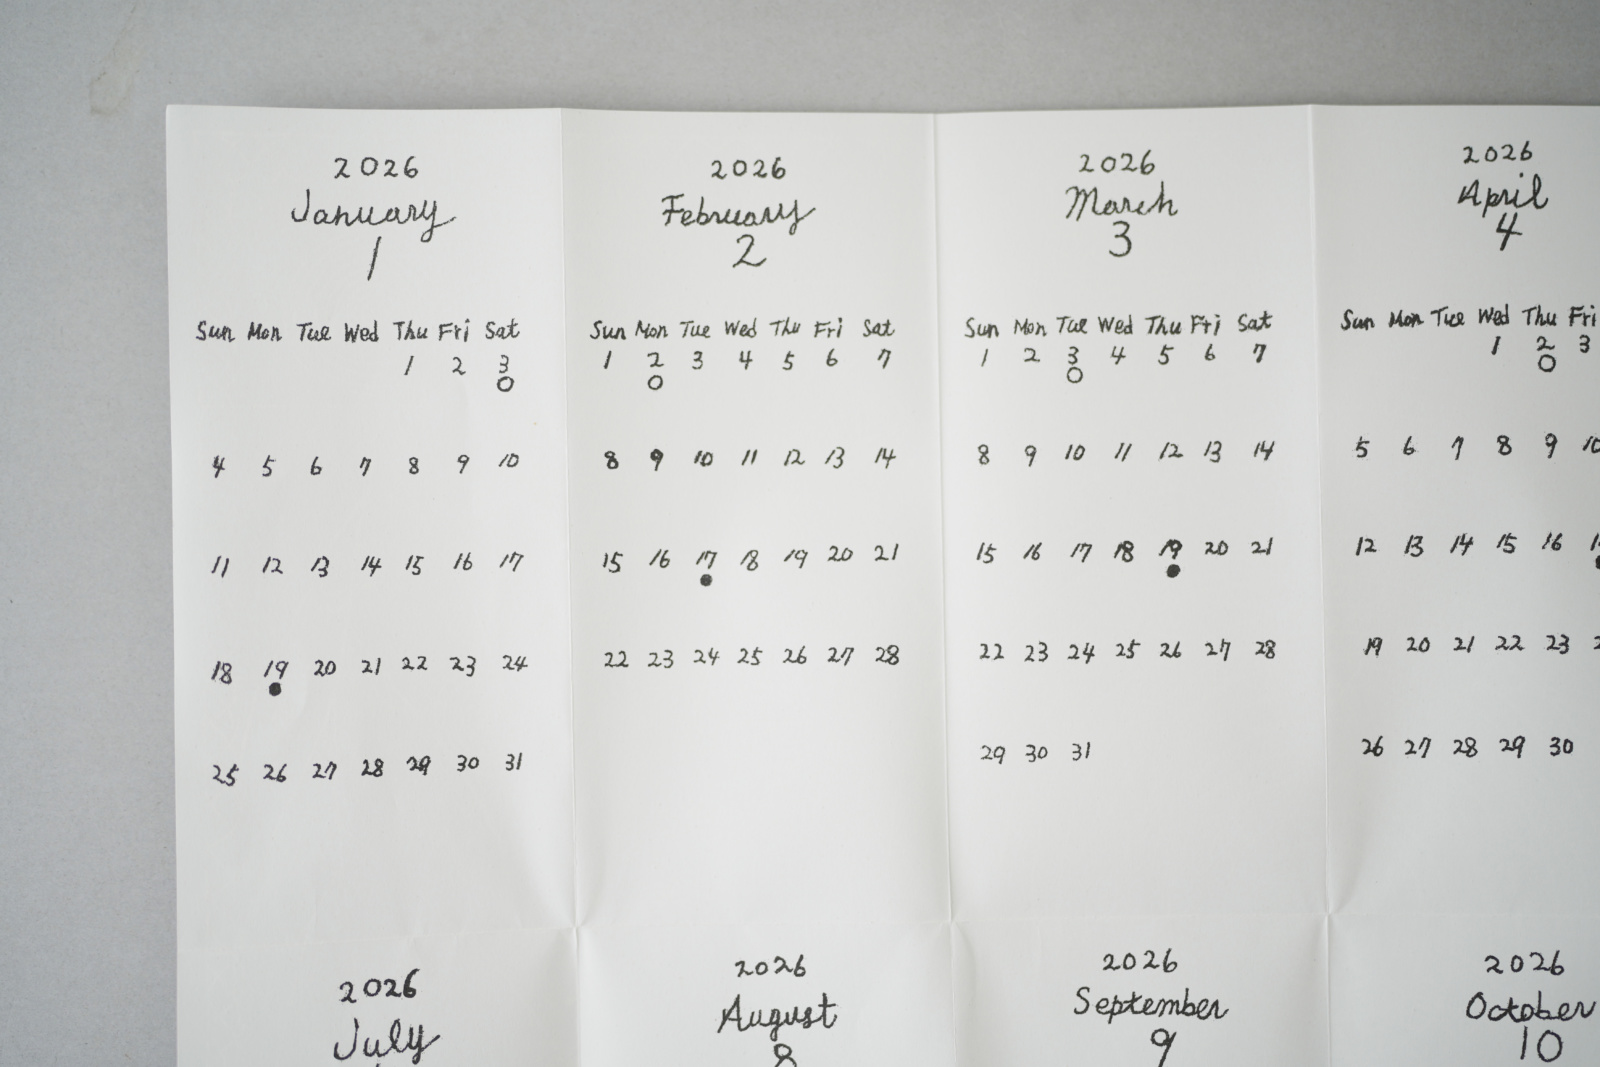 2026
January
1
Sun Mon Tue Wed Thu Fri Sat
1 2 3
4 5 6 7 8 9 10
11 12 13 14 15 16 17
18 19 20 21 22 23 24
25 26 27 28 29 30 31
2026
February
2
Sun Mon Tue Wed Thu Fri Sat
1 2 3 4 5 6 7
8 9 10 11 12 13 14
15 16 17 18 19 20 21
22 23 24 25 26 27 28
2026
March
3
Sun Mon Tue Wed Thu Fri Sat
1 2 3 4 5 6 7
8 9 10 11 12 13 14
15 16 17 18 19 20 21
22 23 24 25 26 27 28
29 30 31
2026
April
4
Sun Mon Tue Wed Thu Fri
1 2 3
5 6 7 8 9 10
12 13 14 15 16
19 20 21 22 23
26 27 28 29 30
2026
July
2026
August
8
2026
September
9
2026
October
10